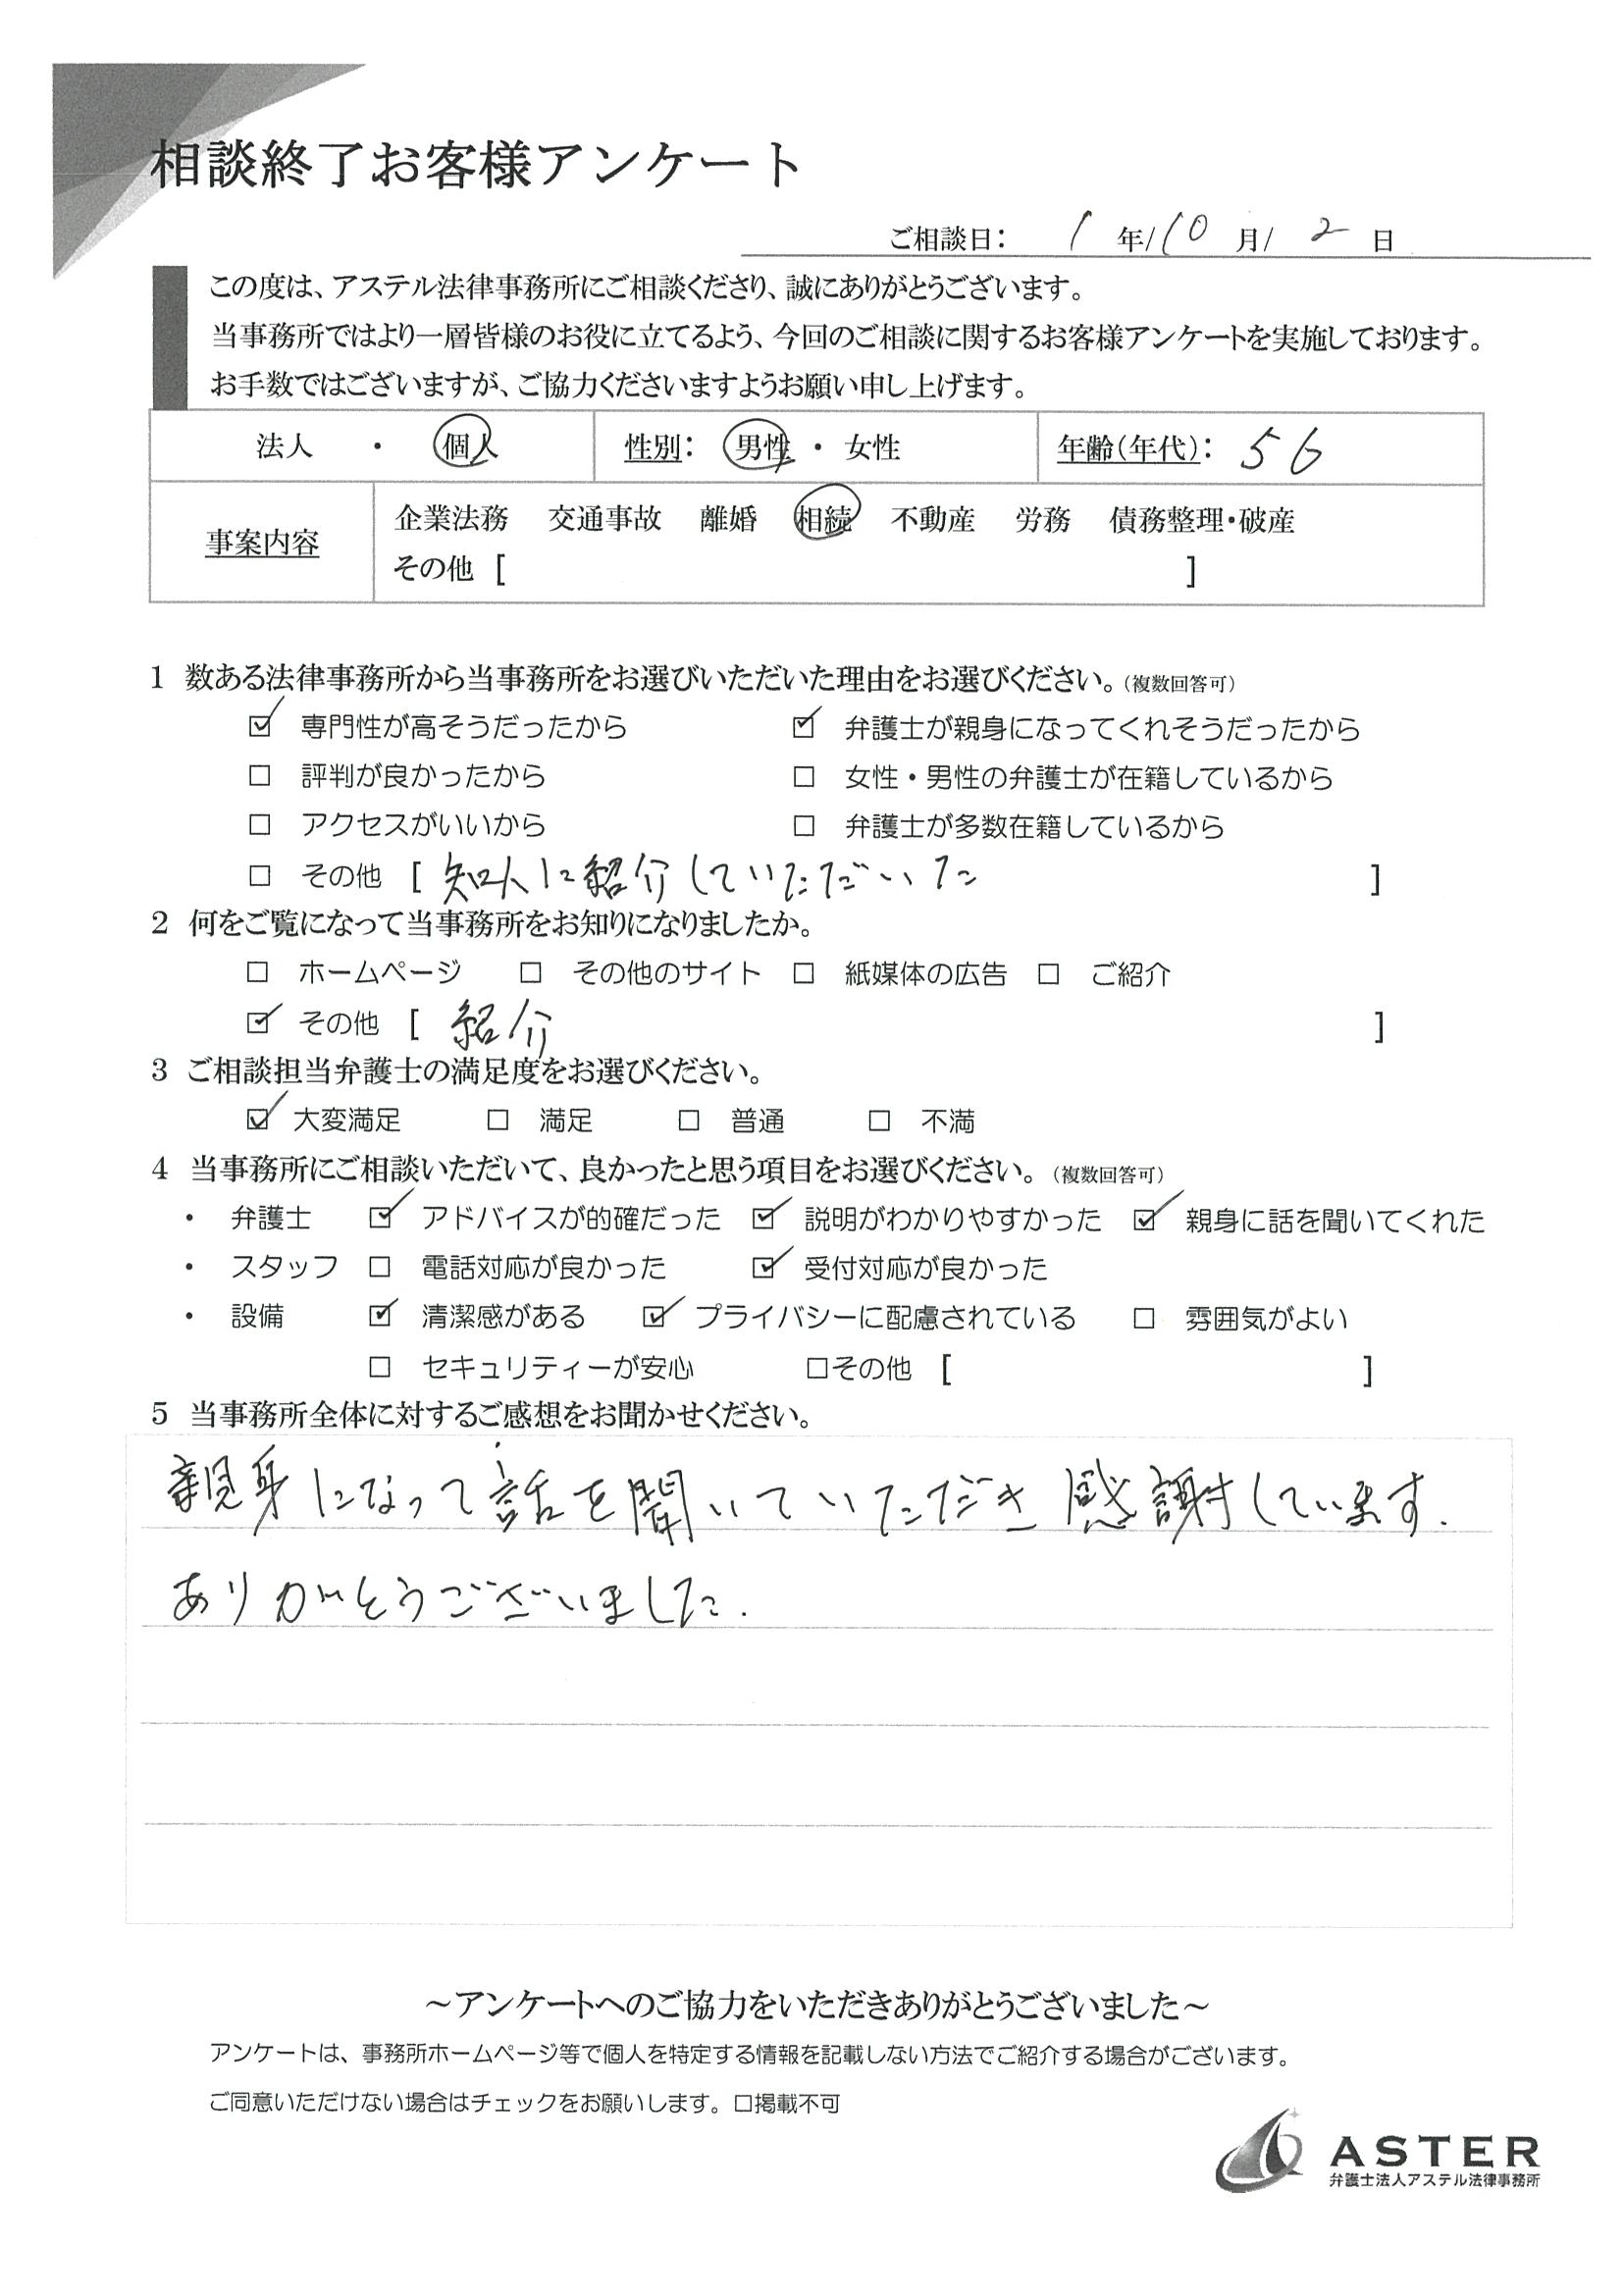 相談終了お客様アンケート
ご相談日: 1 年/ 10 月/ 2 日
この度は、アステル法律事務所にご相談くださり、誠にありがとうございます。
当事務所ではより一層皆様のお役に立てるよう、今回のご相談に関するお客様アンケートを実施しております。
お手数ではございますが、ご協力くださいますようお願い申し上げます。
法人 ・ 個人 性別: 男性 ・ 女性 年齢(年代): 56
事案内容 企業法務 交通事故 離婚 相続 不動産 労務 債務整理・破産
その他 [ ]
1 数ある法律事務所から当事務所をお選びいただいた理由をお選びください。(複数回答可)
☑ 専門性が高そうだったから ☑ 弁護士が親身になってくれそうだったから
□ 評判が良かったから □ 女性・男性の弁護士が在籍しているから
□ アクセスがいいから □ 弁護士が多数在籍しているから
□ その他 [ 知人に紹介していただいた ]
2 何をご覧になって当事務所をお知りになりましたか。
□ ホームページ □ その他のサイト □ 紙媒体の広告 □ ご紹介
☑ その他 [ 紹介 ]
3 ご相談担当弁護士の満足度をお選びください。
☑ 大変満足 □ 満足 □ 普通 □ 不満
4 当事務所にご相談いただいて、良かったと思う項目をお選びください。(複数回答可)
・ 弁護士 ☑ アドバイスが的確だった ☑ 説明がわかりやすかった ☑ 親身に話を聞いてくれた
・ スタッフ □ 電話対応が良かった ☑ 受付対応が良かった
・ 設備 ☑ 清潔感がある ☑ プライバシーに配慮されている □ 雰囲気がよい
□ セキュリティーが安心 □その他 [ ]
5 当事務所全体に対するご感想をお聞かせください。
親身になって話を聞いていただき感謝しています.
ありがとうございました.
～アンケートへのご協力をいただきありがとうございました～
アンケートは、事務所ホームページ等で個人を特定する情報を記載しない方法でご紹介する場合がございます。
ご同意いただけない場合はチェックをお願いします。□掲載不可
ASTER
弁護士法人アステル法律事務所